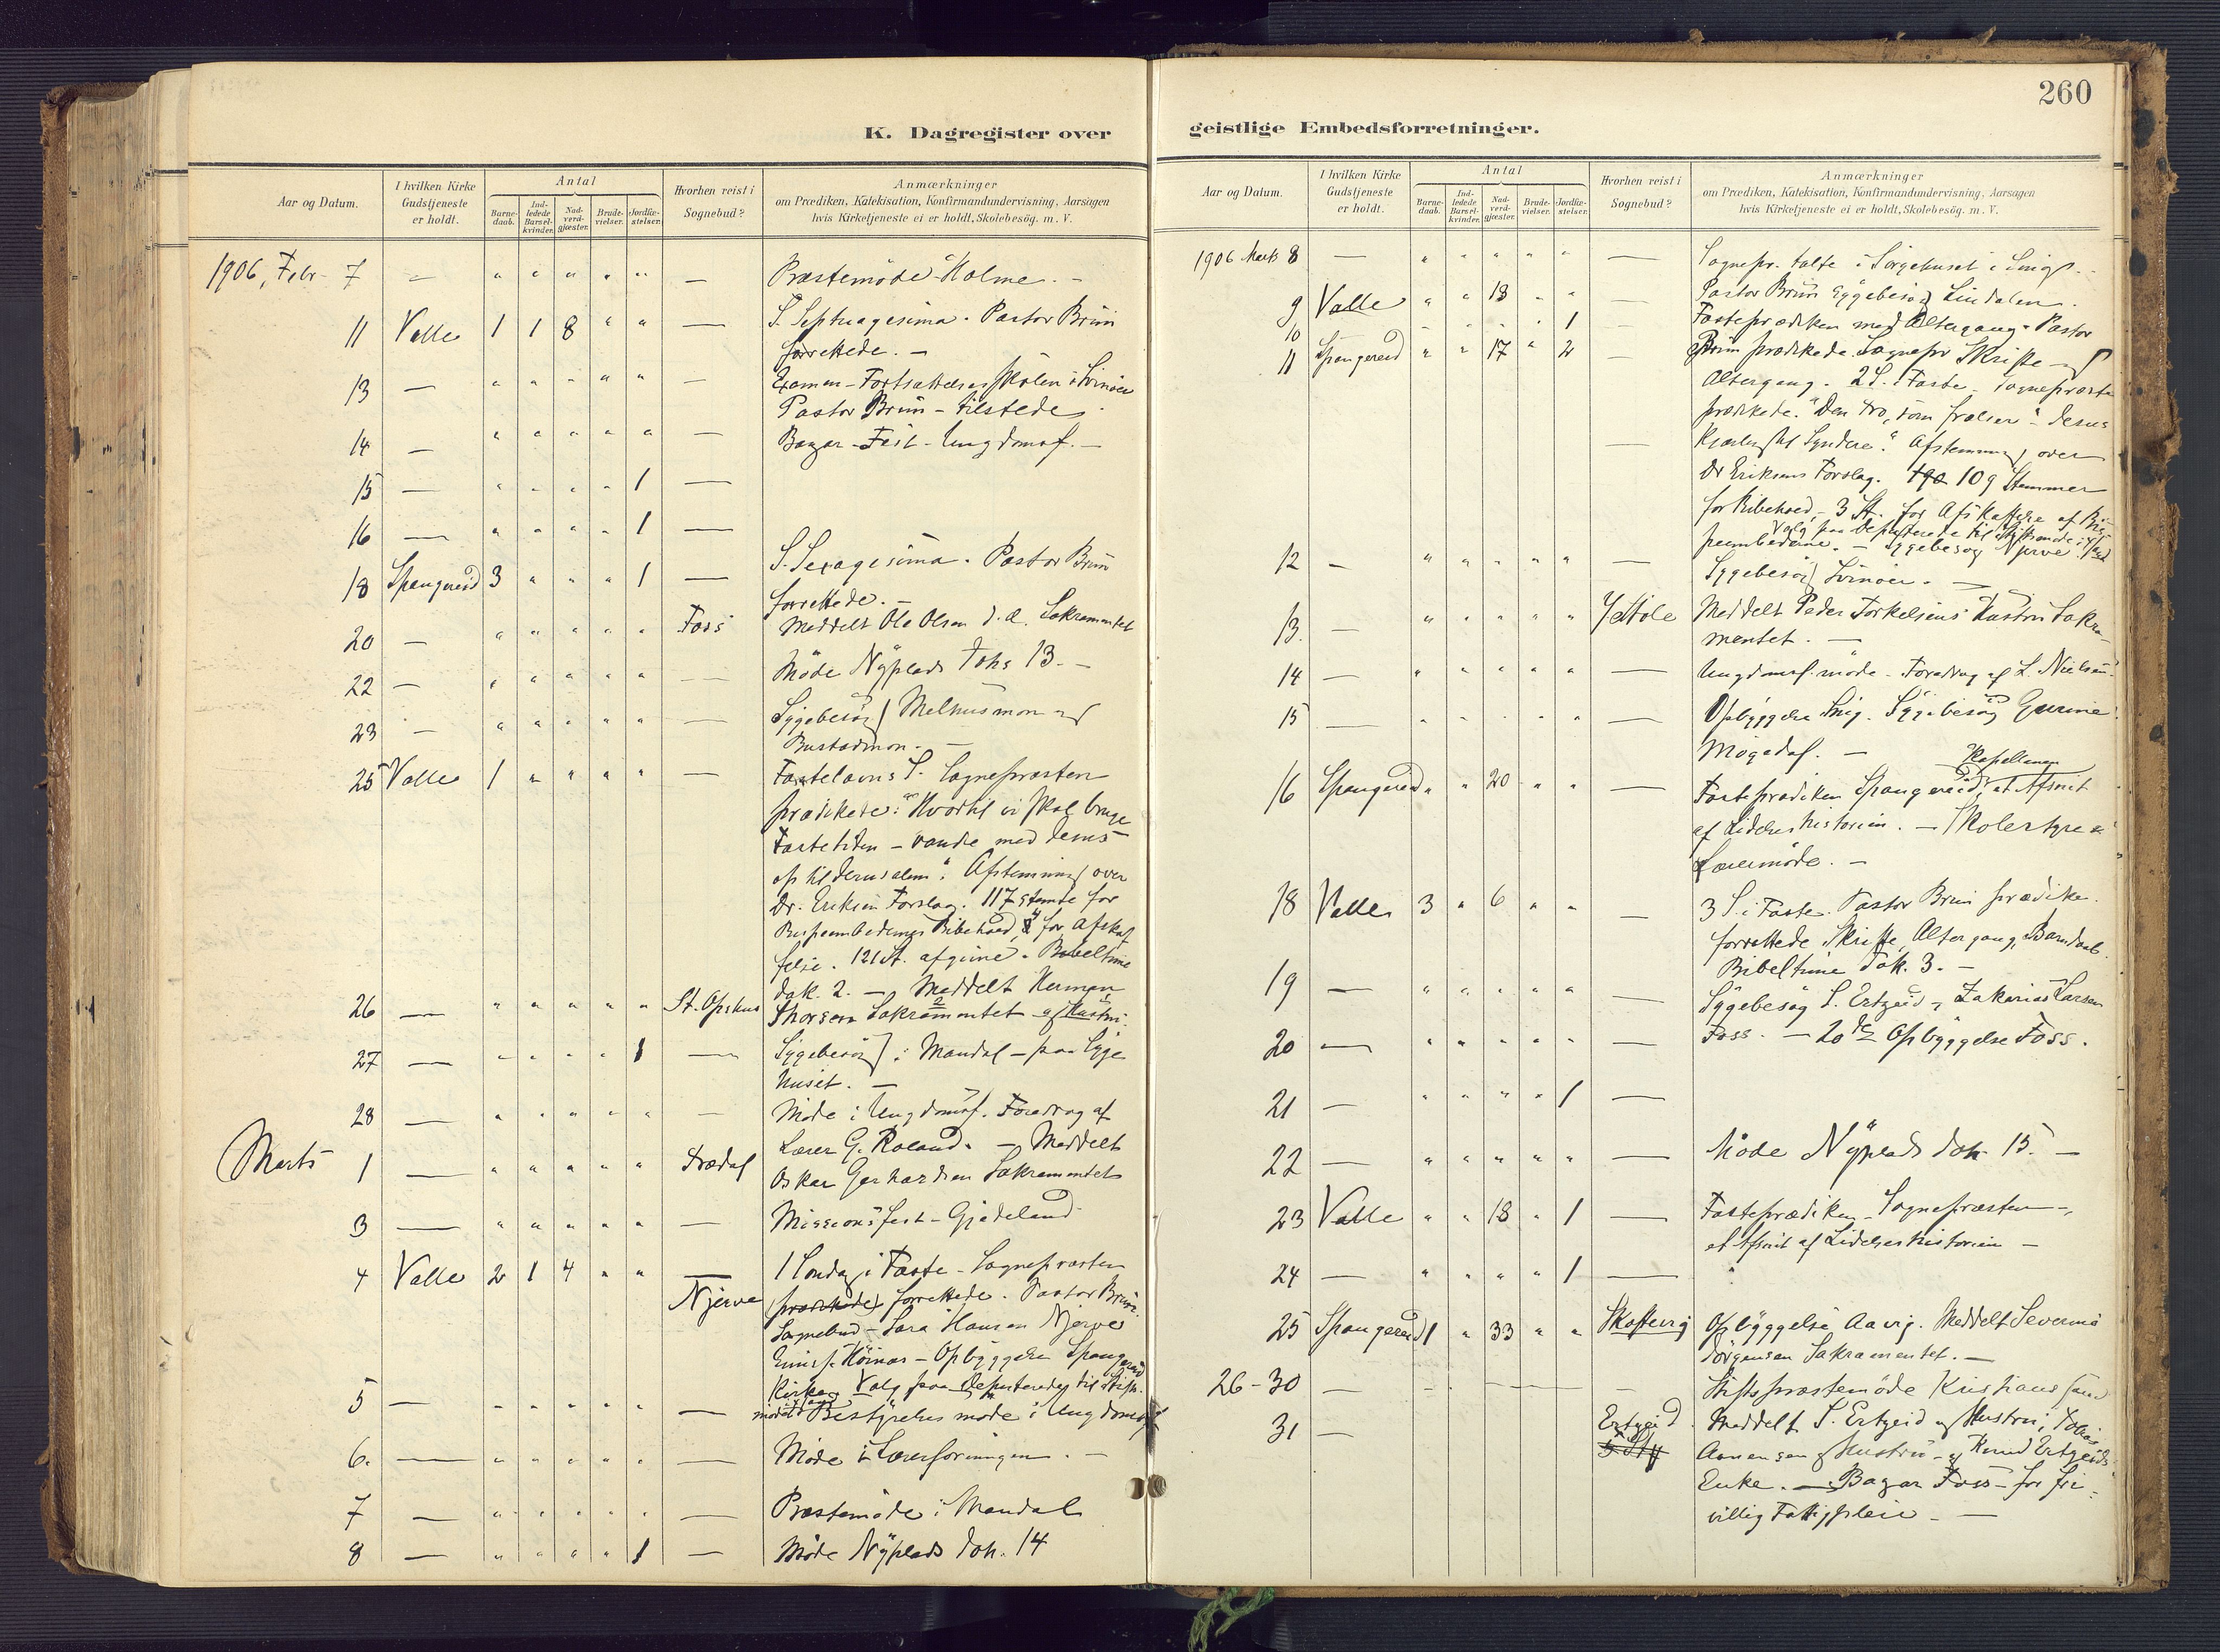 260
K. Dagregister over
Aar og Datum. I hvilken Kirke Gudstjeneste er holdt. Antal Barne-daab. Ind-ledede Barsel-kvinder. Nad-verd-gjæster. Brude-vielser. Jordfæ-stelser. Hvorhen reist i Sognebud? Anmærkninger
om Prædiken, Katekisation, Konfirmandundervisning, Aarsagen
hvis Kirketjeneste ei er holdt, Skolebesög. m. V.
1906, Febr. 7 — " " " " " — Præstemöde Holme. —
11 Valle 1 1 8 " " — S. Septuagesima. Pastor Brun
forrettede. —
13 — " " " " " — Examen - Fortsættelsesskolen i Svinöer
Pastor Brun - tilstede.
14 — " " " " " — Bazar - Fest - Ungdomsf. —
15 — " " " " 1 —
16 — " " " " 1 —
18 Spangereid 3 " " " 1 — S. Sexagesima. Pastor Brun
forrettede. —
20 — " " " " " Foss Meddelt Ole Olsen d. æ. Sakramentet
22 — " " " " " — Möde Nÿplads Joh. 13. —
23 — " " " " " — Sÿgebesög Melhusmon og
Bustadmon. —
25 Valle 1 " " " " — Fastelavns S. Sognepræsten
prædikede: "Hvortil vi skal bruge
Fastetiden - vandre med Jesus
op til Jerusalem". Afstemning over
Dr. Eriksen Forslag. 117 stemte for
Bispeembedernes Bibehold, 4 for Afskaf
felse. 121 St. afgivne. Bibeltime
Jak. 2. — Meddelt Herman
26 — " " " " " St. Opshus Thorsen Sakramentet og Hustru.
27 — " " " " 1 — Sÿgebesög i Mandal - paa Syge
huset. —
28 — " " " " " — Möde i Ungdomsf. Foredrag af
Lærer G. Roland. — Meddelt
Marts 1 — " " " " " Trædal Oskar Gerhardsen Sakramentet
3 — " " " " " — Missionsfest - Gjedeland
4 Valle 2 1 4 " " — 1 Söndag i Faste - Sognepræsten
Njerve (prædikede) forrettede. Pastor Brun.
Sognebud - Sara Hansen Njerve
Opbÿggelse Spangereid
Kirke. Valg paa Deputerede til Stifts-
5 — " " " " " — mödet Bestÿrelsesmöde i Ungdomsf
6. — " " " " " — Möde i Lærerforeningen. —
7 — " " " " " — Præstemöde i Mandal
8 — " " " " 1 — Möde Nÿplads Joh. 14
geistlige Embedsforretninger.
Aar og Datum. I hvilken Kirke Gudstjeneste er holdt. Antal Barne-daab. Ind-ledede Barsel-kvinder. Nad-verd-gjæster. Brude-vielser. Jordfæ-stelser. Hvorhen reist i Sognebud? Anmærkninger
om Prædiken, Katekisation, Konfirmandundervisning, Aarsagen
hvis Kirketjeneste ei er holdt, Skolebesög. m. V.
1906 Marts 8 — " " " " " — Sognepr. talte i Sörgehuset i Snig. -
9 Valle " " 18 " " — Pastor Brun Sÿgebesög Lindalen.
10 " " " " 1 — Fasteprædiken med Altergang. Pastor
11 Spangereid " " 17 " 2 — Brun prædikede. Sognepr Skrifte og
Altergang. 2 S. i Faste. Sognepræsten
prædikede. "Den Tro, som frelser - Jesus
Kjærlighed til Syndere". Afstemning over
Dr Eriksens Forslag. 109 Stemmer
for Bibehold, - 3 St. for Afskaffelse af Bis-
peembederne. — Valg paa Deputerede til Stiftsmöde
Sygebesög Njerve.
12 — " " " " " — Sÿgebesög Svinöer. —
13. — " " " " " Y. Stole Meddelt Peder Torkelsens Hustru Sakra-
mentet. —
14 — " " " " " — Ungdomsf. möde - Foredrag af L. Nielsen.
15 — " " " " " — Opbÿggelse Snig. Sÿgebesög Gurine
Mögedal. —
16 Spangereid " " 20 " " — Kapellanen
Fasteprædiken Spangereid, et Afsnit
af Lidelseshistorien. — Skolestyre &
Lærermöde. —
18 Valle 3 " 6 " " — 3 S. i Faste. Pastor Brun prædike.
forrettede Skrifte, Altergang, Barnedaab.
Bibeltime Jak. 3. —
19 — " " " " " — Sÿgebesög S. Ertzeid - Zakarias Larsen
20 — " " " " " — Foss. — 20de Opbÿggelse Foss.
21 — " " " " 1 —
22 — " " " " " — Möde Nÿplads Joh. 15. —
23 Valle " " 18 " 1 — Fasteprædiken - Sognepræsten -
et Afsnit af Lidelseshistorien —
24 — " " " " 1 —
25 Spangereid 1 " 33 " " Skoftevig Opbÿggelse Aavig. Meddelt Severine
Jörgensen Sakramentet. —
26-30 — — Stiftspræstemöde Kristianssand
31 — Ertzeid Meddelt S. Ertzeid og Hustru, Tobias
Aanensen og Hustru - og Knud Ertzeids
Enke. — Bazar Foss - for fri-
villig Fattigpleie - —